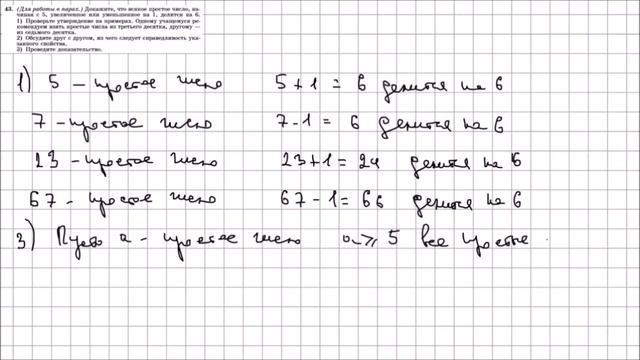 43. (Для работы в парах.) Докажите, что всякое простое число, на-
чиная с 5, увеличенное или уменьшенное на 1, делится на 6.
1) Проверьте утверждение на примерах. Одному учащемуся ре-
комендуем взять простые числа из третьего десятка, другому —
из седьмого десятка.
2) Обсудите друг с другом, из чего следует справедливость ука-
занного свойства.
3) Проведите доказательство.
1) 5 – простое число 5+1 = 6 делится на 6
7 – простое число 7-1 = 6 делится на 6
23 – простое число 23+1 = 24 делится на 6
67 – простое число 67-1 = 66 делится на 6
3) Пусть a – простое число a ⩾ 5 все простые